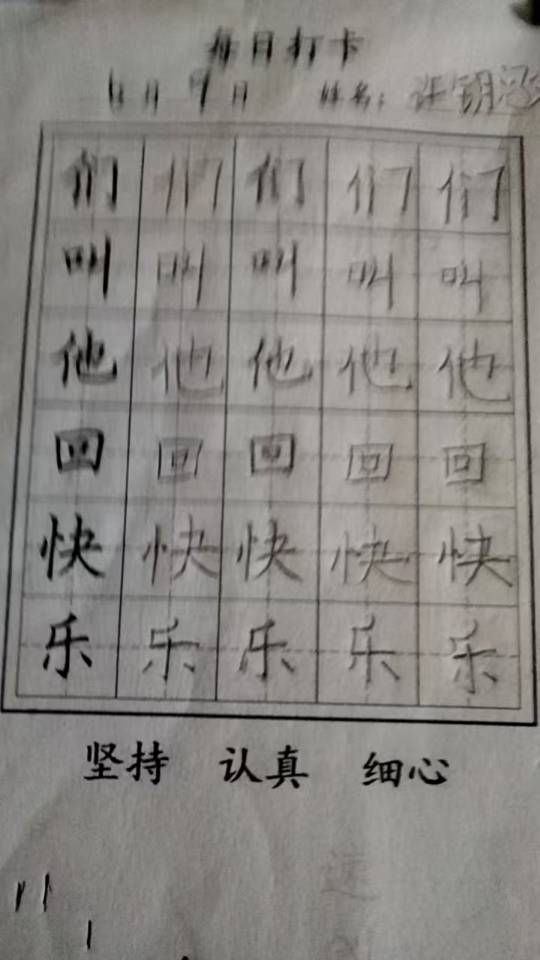 每日打卡
月9日 姓名：张钥涵
们们们们们
叫叫叫叫叫
他他他他他
回回回回回
快快快快快
乐乐乐乐乐
坚持 认真 细心